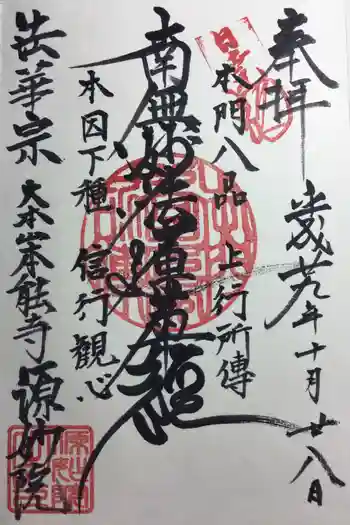 奉拝
平成廿九年十月廿八日
本門八品 上行所傳
南無妙法蓮華経
本因下種 信行観心
法華宗 大本山本能寺 源妙院